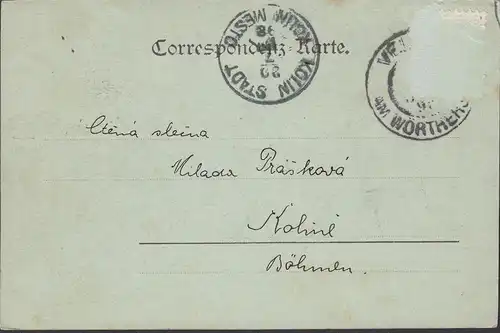 Correspondenz-Karte.
KOLIN STADT
KOLÍN MĚSTO
20
7
98
VEL
AM WÖRTHERS
98
Ctěná slečna
Milada Prášková
Kolině
Böhmen.